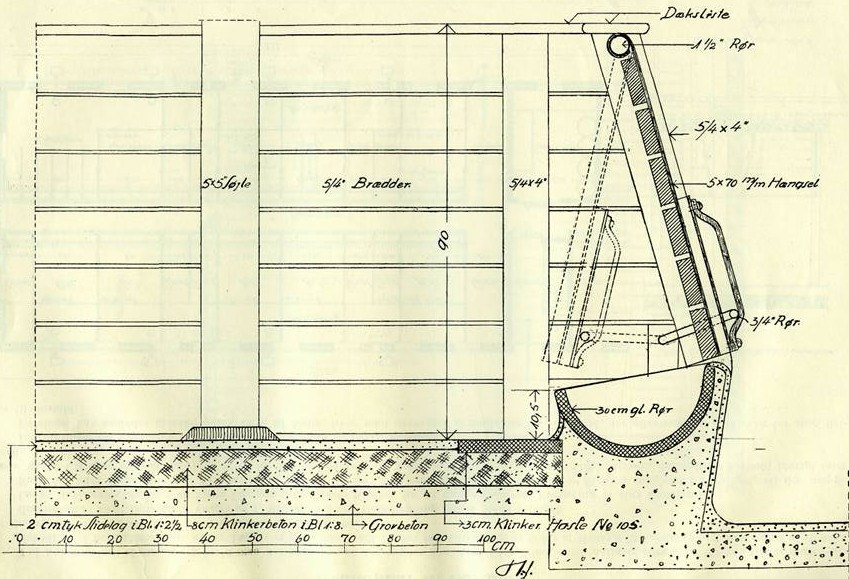 Dæksliste
1 1/2" Rør
5/4 x 4"
5 x 70 m/m Hængsel
5x5" Søjle
5/4" Brædder.
5/4x4"
90
3/4" Rør.
10,5
30 cm gl. Rør
2 cm tyk Slidelag i Bl. 1:2 1/2
8cm Klinkerbeton i Bl. 1:8.
Grovbeton
3cm. Klinker. Hasle No 105.
0 10 20 30 40 50 60 70 80 90 100 cm